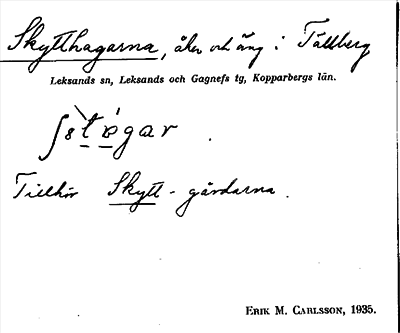 Skytthagarna, åker och äng i Tällberg
Leksands sn, Leksands och Gagnefs tg, Kopparbergs län.
Tillhör Skytt-gårdarna.
Erik M. Carlsson, 1935.